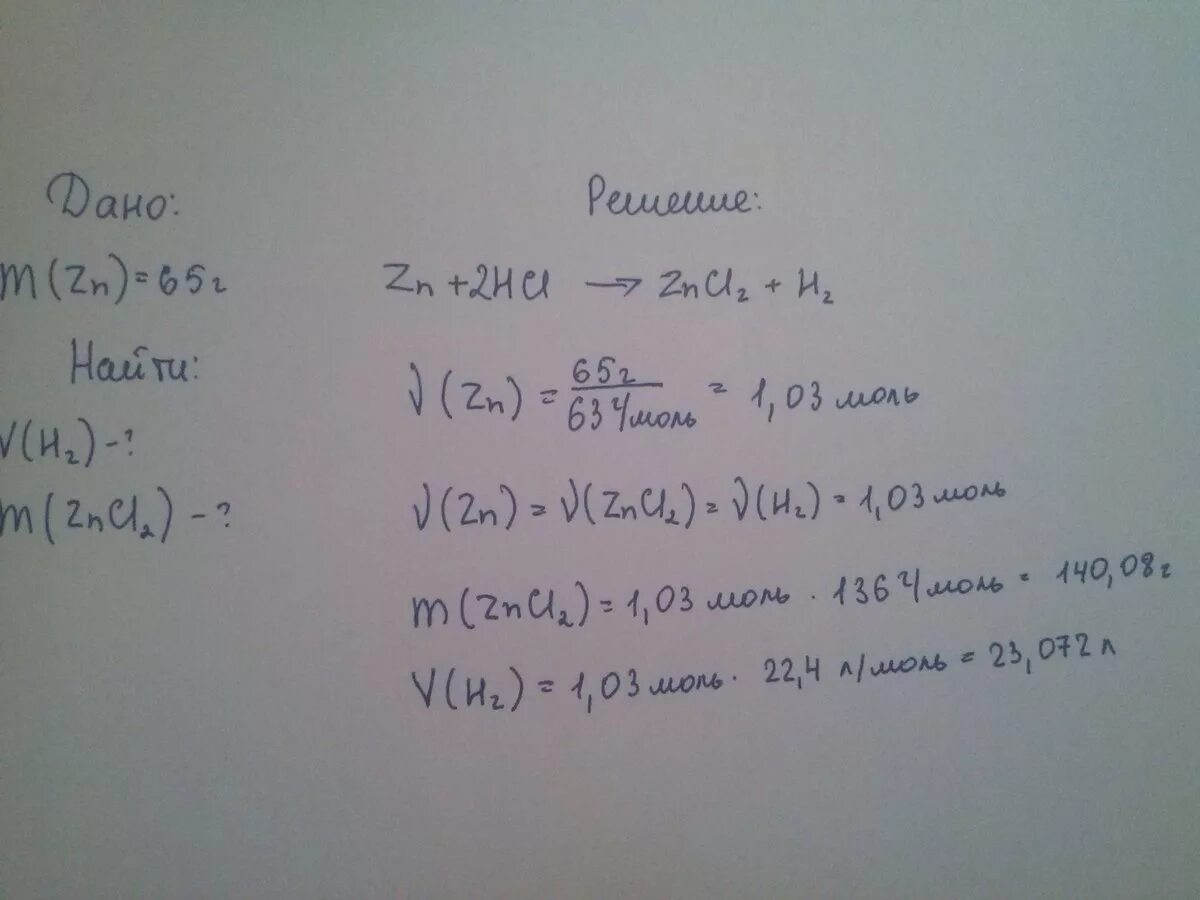 Дано:
m(Zn)=65г
Найти:
V(H₂)-?
m(ZnCl₂)-?
Решение:
Zn+2HCl → ZnCl₂ + H₂
ν(Zn) = 65г / 63 г/моль = 1,03 моль
ν(Zn) = ν(ZnCl₂) = ν(H₂) = 1,03 моль
m(ZnCl₂) = 1,03 моль · 136 г/моль = 140,08г
V(H₂) = 1,03 моль · 22,4 л/моль = 23,072 л